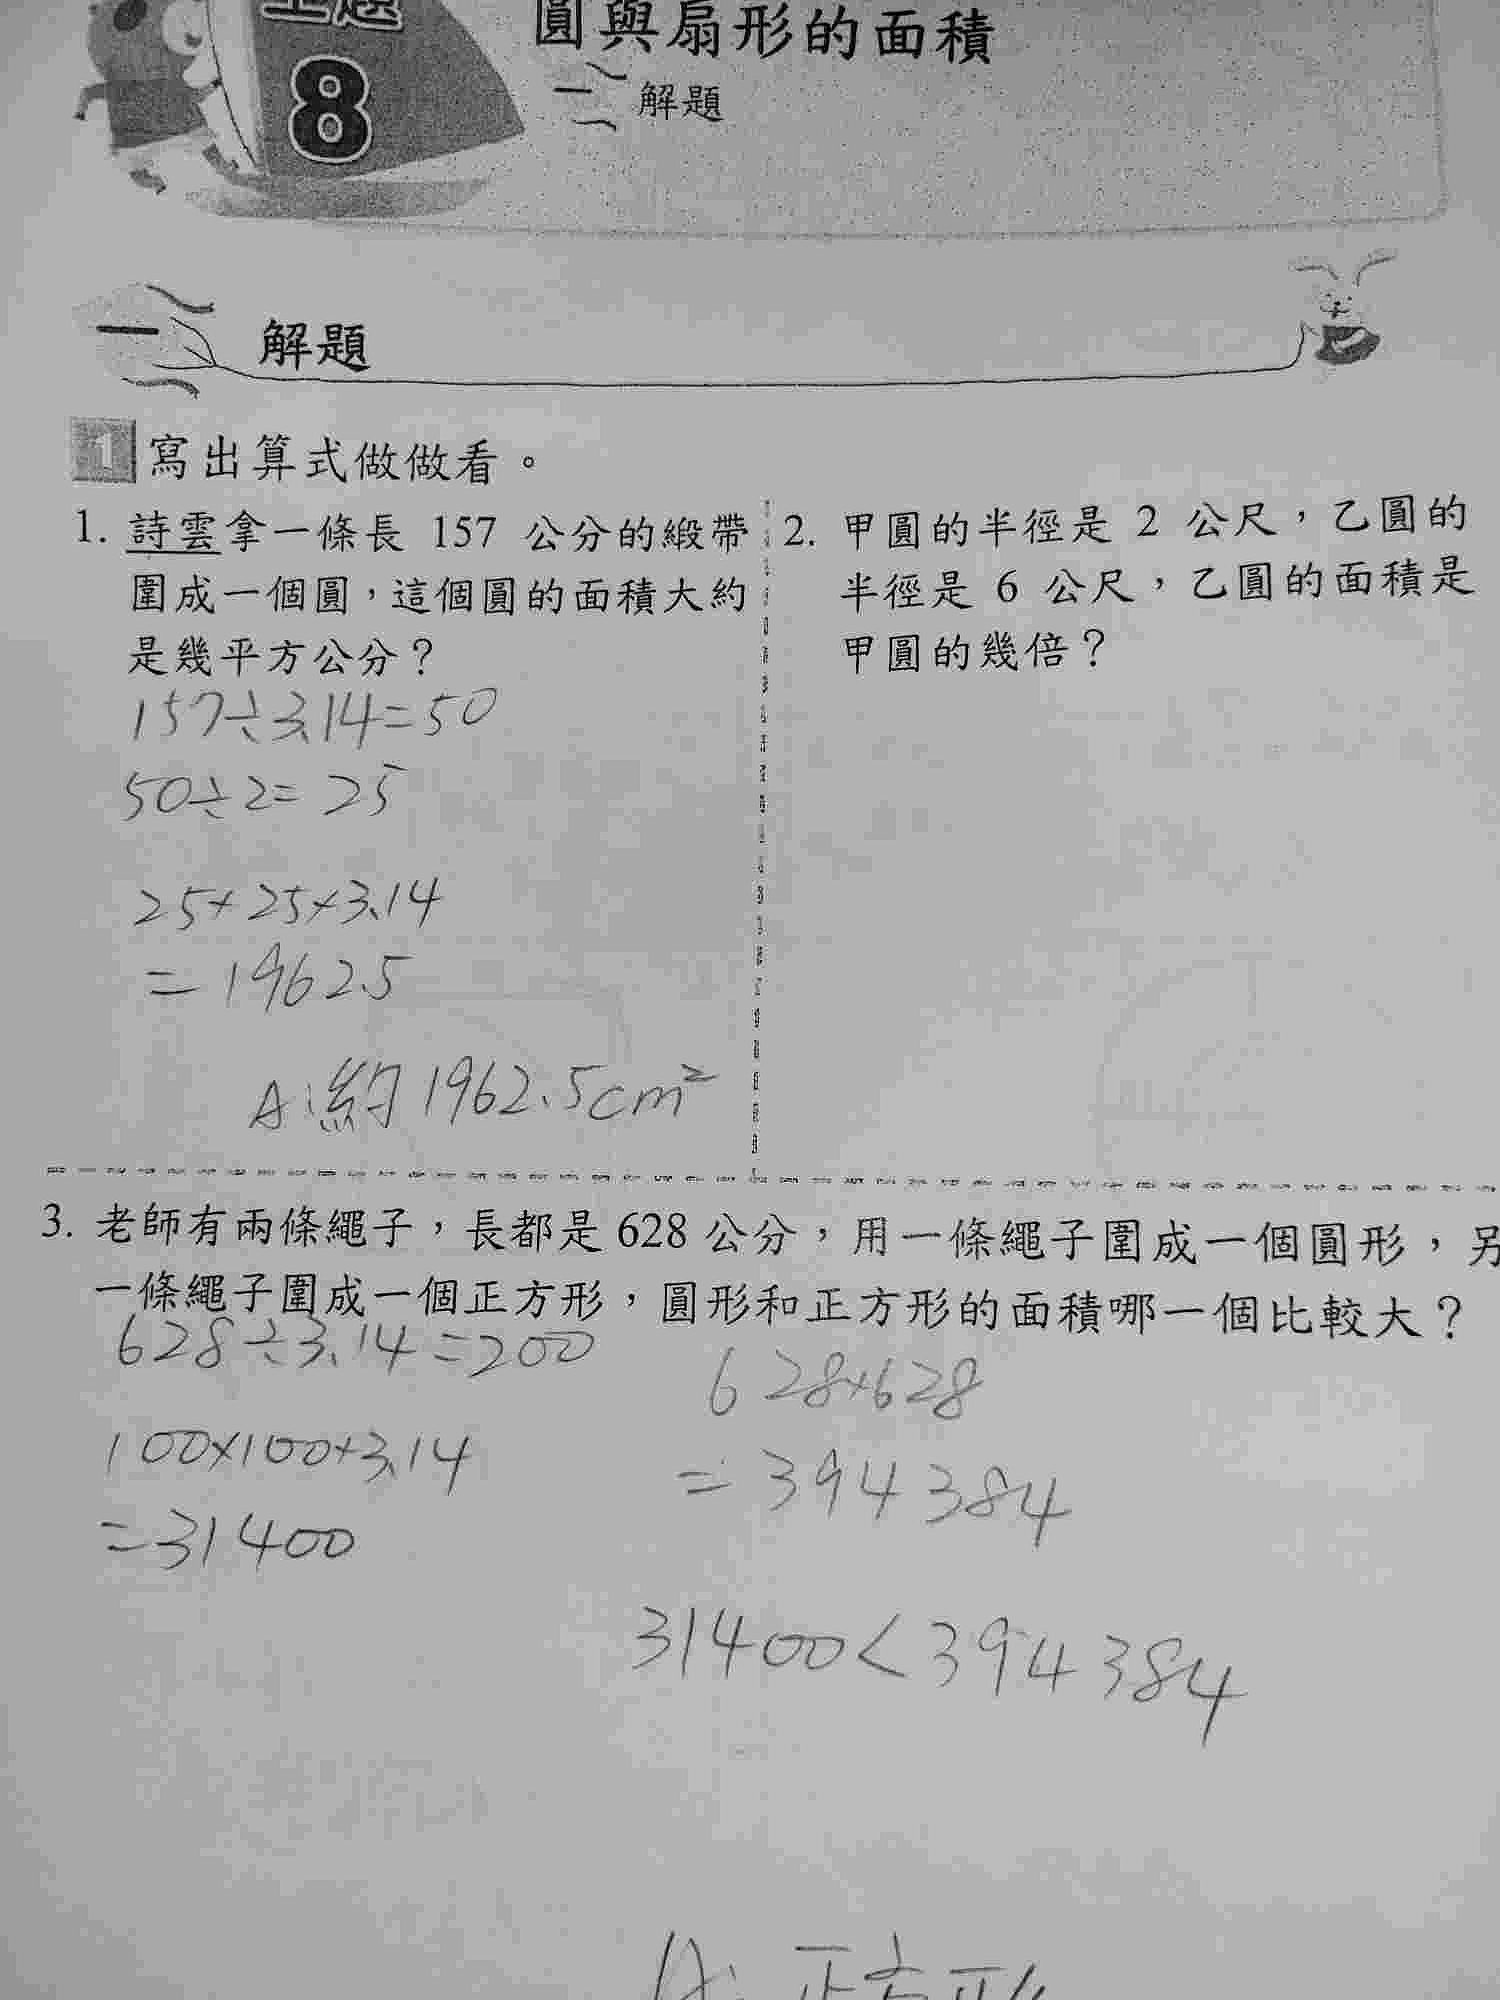 主題
8
圓與扇形的面積
一 解題
一 解題
1 寫出算式做做看。
1. 詩雲拿一條長 157 公分的緞帶
圍成一個圓，這個圓的面積大約
是幾平方公分？
157÷3.14=50
50÷2=25
25×25×3.14
=1962.5
A:約1962.5cm²
2. 甲圓的半徑是 2 公尺，乙圓的
半徑是 6 公尺，乙圓的面積是
甲圓的幾倍？
3. 老師有兩條繩子，長都是 628 公分，用一條繩子圍成一個圓形，另
一條繩子圍成一個正方形，圓形和正方形的面積哪一個比較大？
628÷3.14=200
100×100×3.14
=31400
628×628
=394384
31400<394384
A:正方形